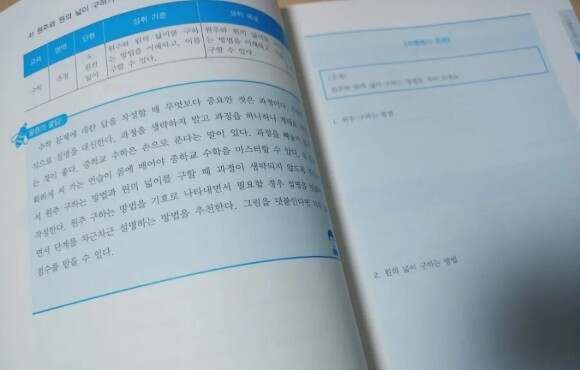 4) 원주와 원의 넓이 구하기
교과 영역 단원 성취 기준 성취 목표
수학 측정 5. 원의 넓이
원주와 원의 넓이를 구하는 방법을 이해하고, 이를 구할 수 있다.
원주와 원의 넓이를 구하는 방법을 이해하고, 구할 수 있다.
꿀팁
수학 문제에 대한 답을 작성할 때 무엇보다 중요한 것은 과정이다.
식으로 설명을 대신한다. 과정을 생략하지 말고 과정을 하나하나
는 것이 좋다. 중학교 수학은 손으로 푼다는 말이 있다. 과정을
확하게 써 가는 연습이 몸에 배어야 중학교 수학을 마스터할 수 있다.
서 원주 구하는 방법과 원의 넓이를 구할 때 과정이 생략되지 않도록
작성한다. 원주 구하는 방법을 기호로 나타내면서 필요할 경우 설명을
면서 단계를 차근차근 설명하는 방법을 추천한다. 그림을 덧붙인다면
점수를 받을 수 있다.
원주와 원의 넓이 구하는 방법을
1. 원주 구하는 방법
2. 원의 넓이 구하는 방법